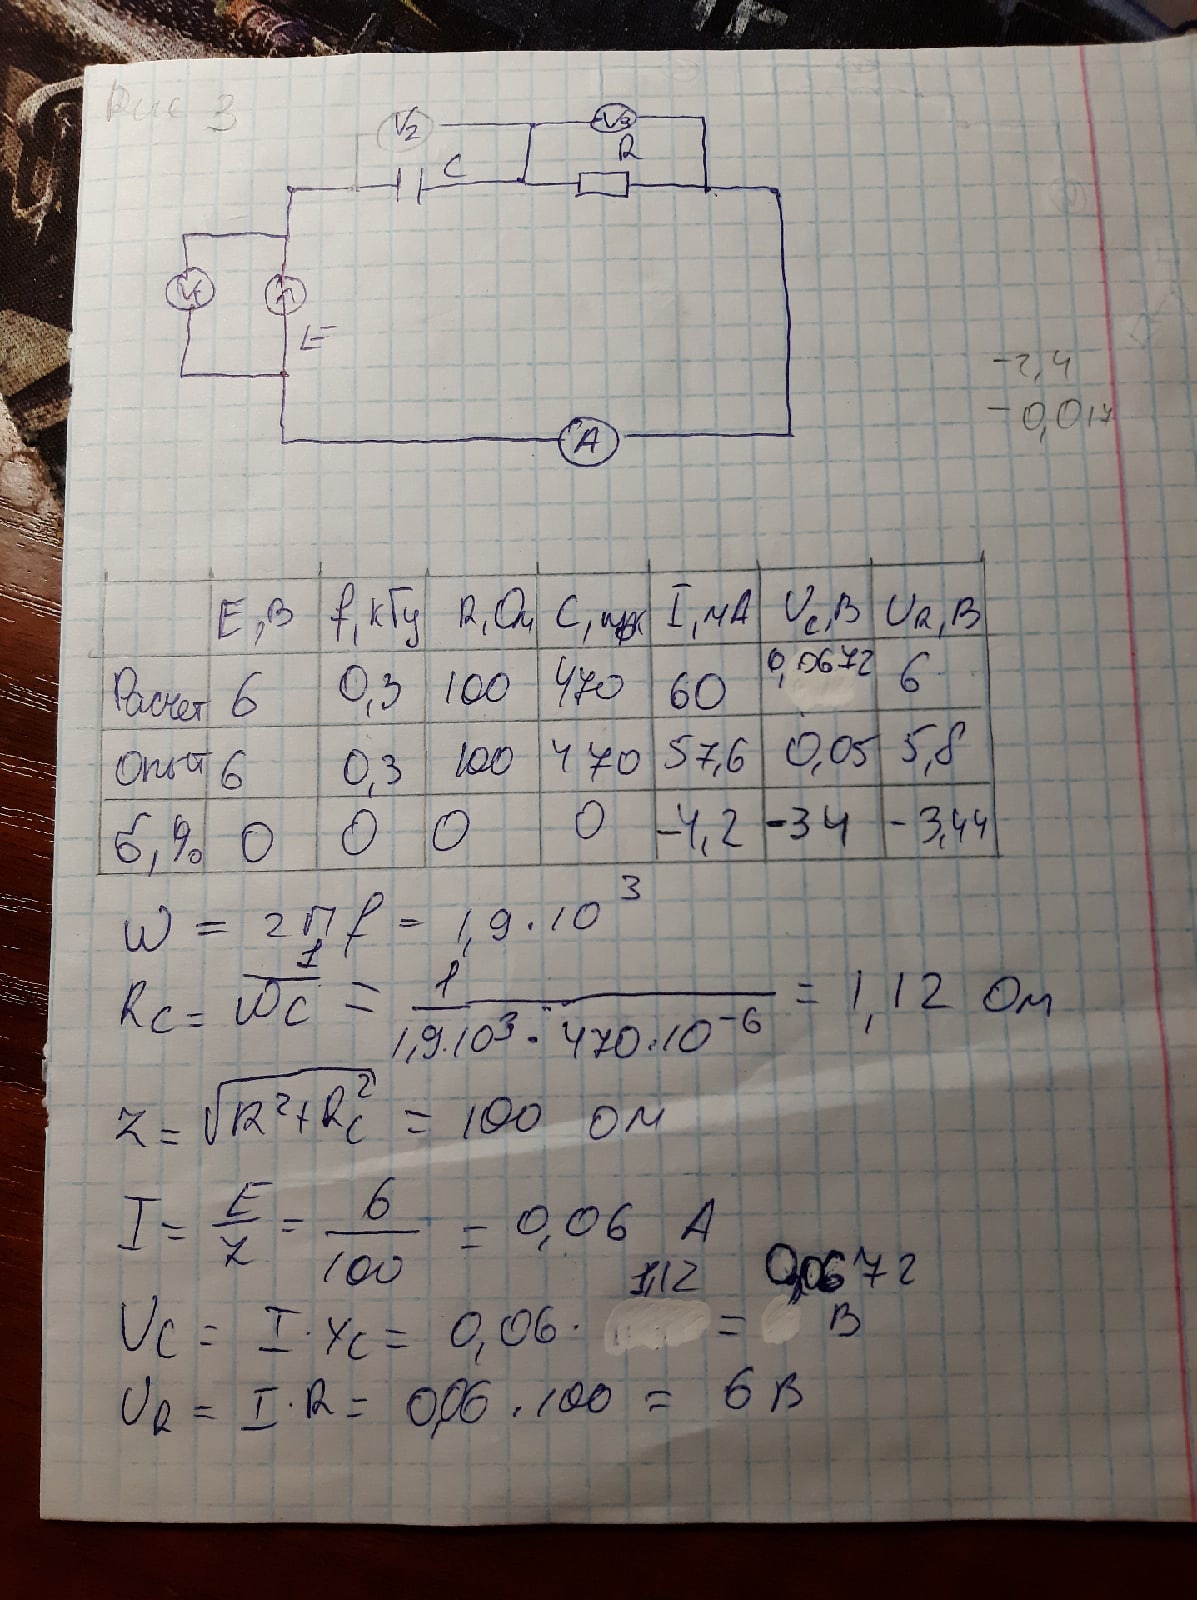 Рис 3
V2
V3
C
R
V1
E
A
-2,4
-0,017
E,В f,кГц R,Ом C,мкФ I,мА Uc,В UR,В
Расчет 6 0,3 100 470 60 0,0672 6
Опыт 6 0,3 100 470 57,6 0,05 5,8
б,% 0 0 0 0 -4,2 -34 -3,44
W = 2πf = 1,9·10³
Rc = 1/Wc = 1/1,9·10³·470·10⁻⁶ = 1,12 Ом
Z = √R²+Rc² = 100 Ом
I = E/Z = 6/100 = 0,06 А
Uc = I·Xc = 0,06·1,12 = 0,0672 В
UR = I·R = 0,06·100 = 6 В